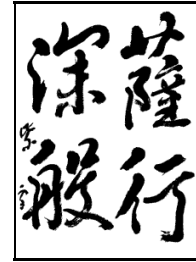 薩行
深般